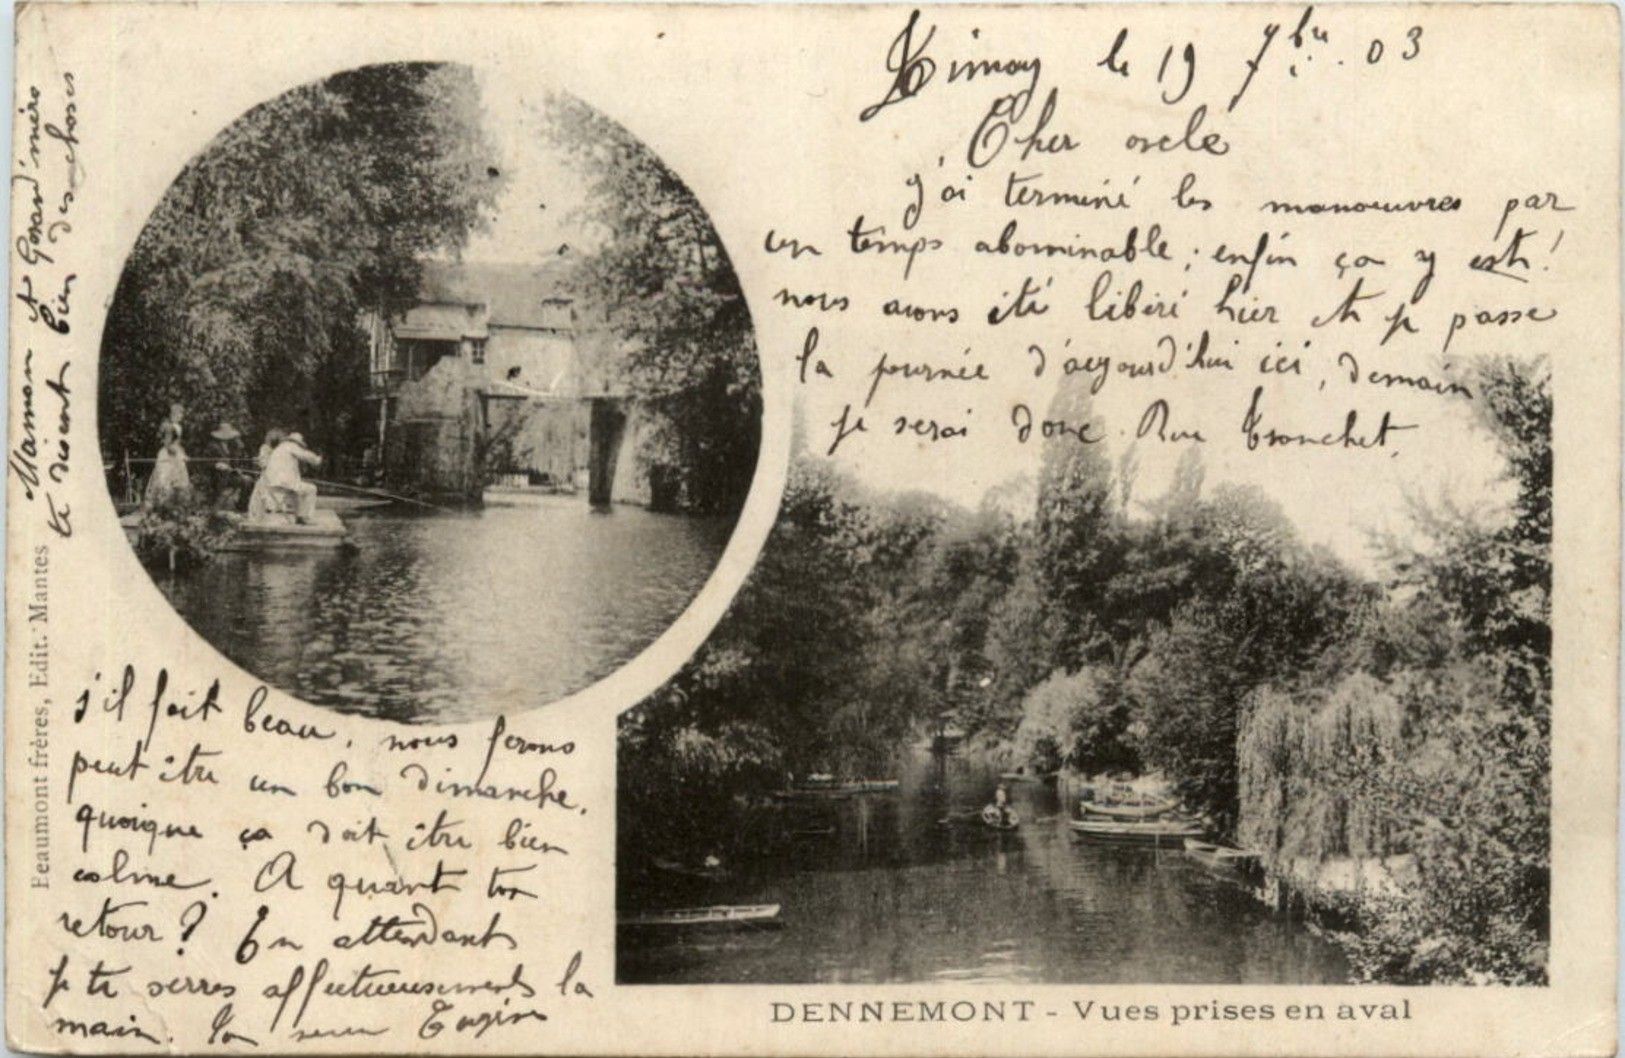 Limay le 19 7bre 03
Cher oncle
j'ai terminé les manoeuvres par
un temps abominable ; enfin ça y est !
nous avons été libéré hier et je passe
la journée d'aujourd'hui ici, demain
je serai donc Rue Tronchet.
s'il fait beau, nous ferons
peut être un bon dimanche,
quoique ça doit être bien
calme. A quant ton
retour ? En attendant
je te serres affectueusement la
main. Ton
Maman et Grand'mère
te disent bien des choses
Beaumont frères, Edit. Mantes
DENNEMONT - Vues prises en aval